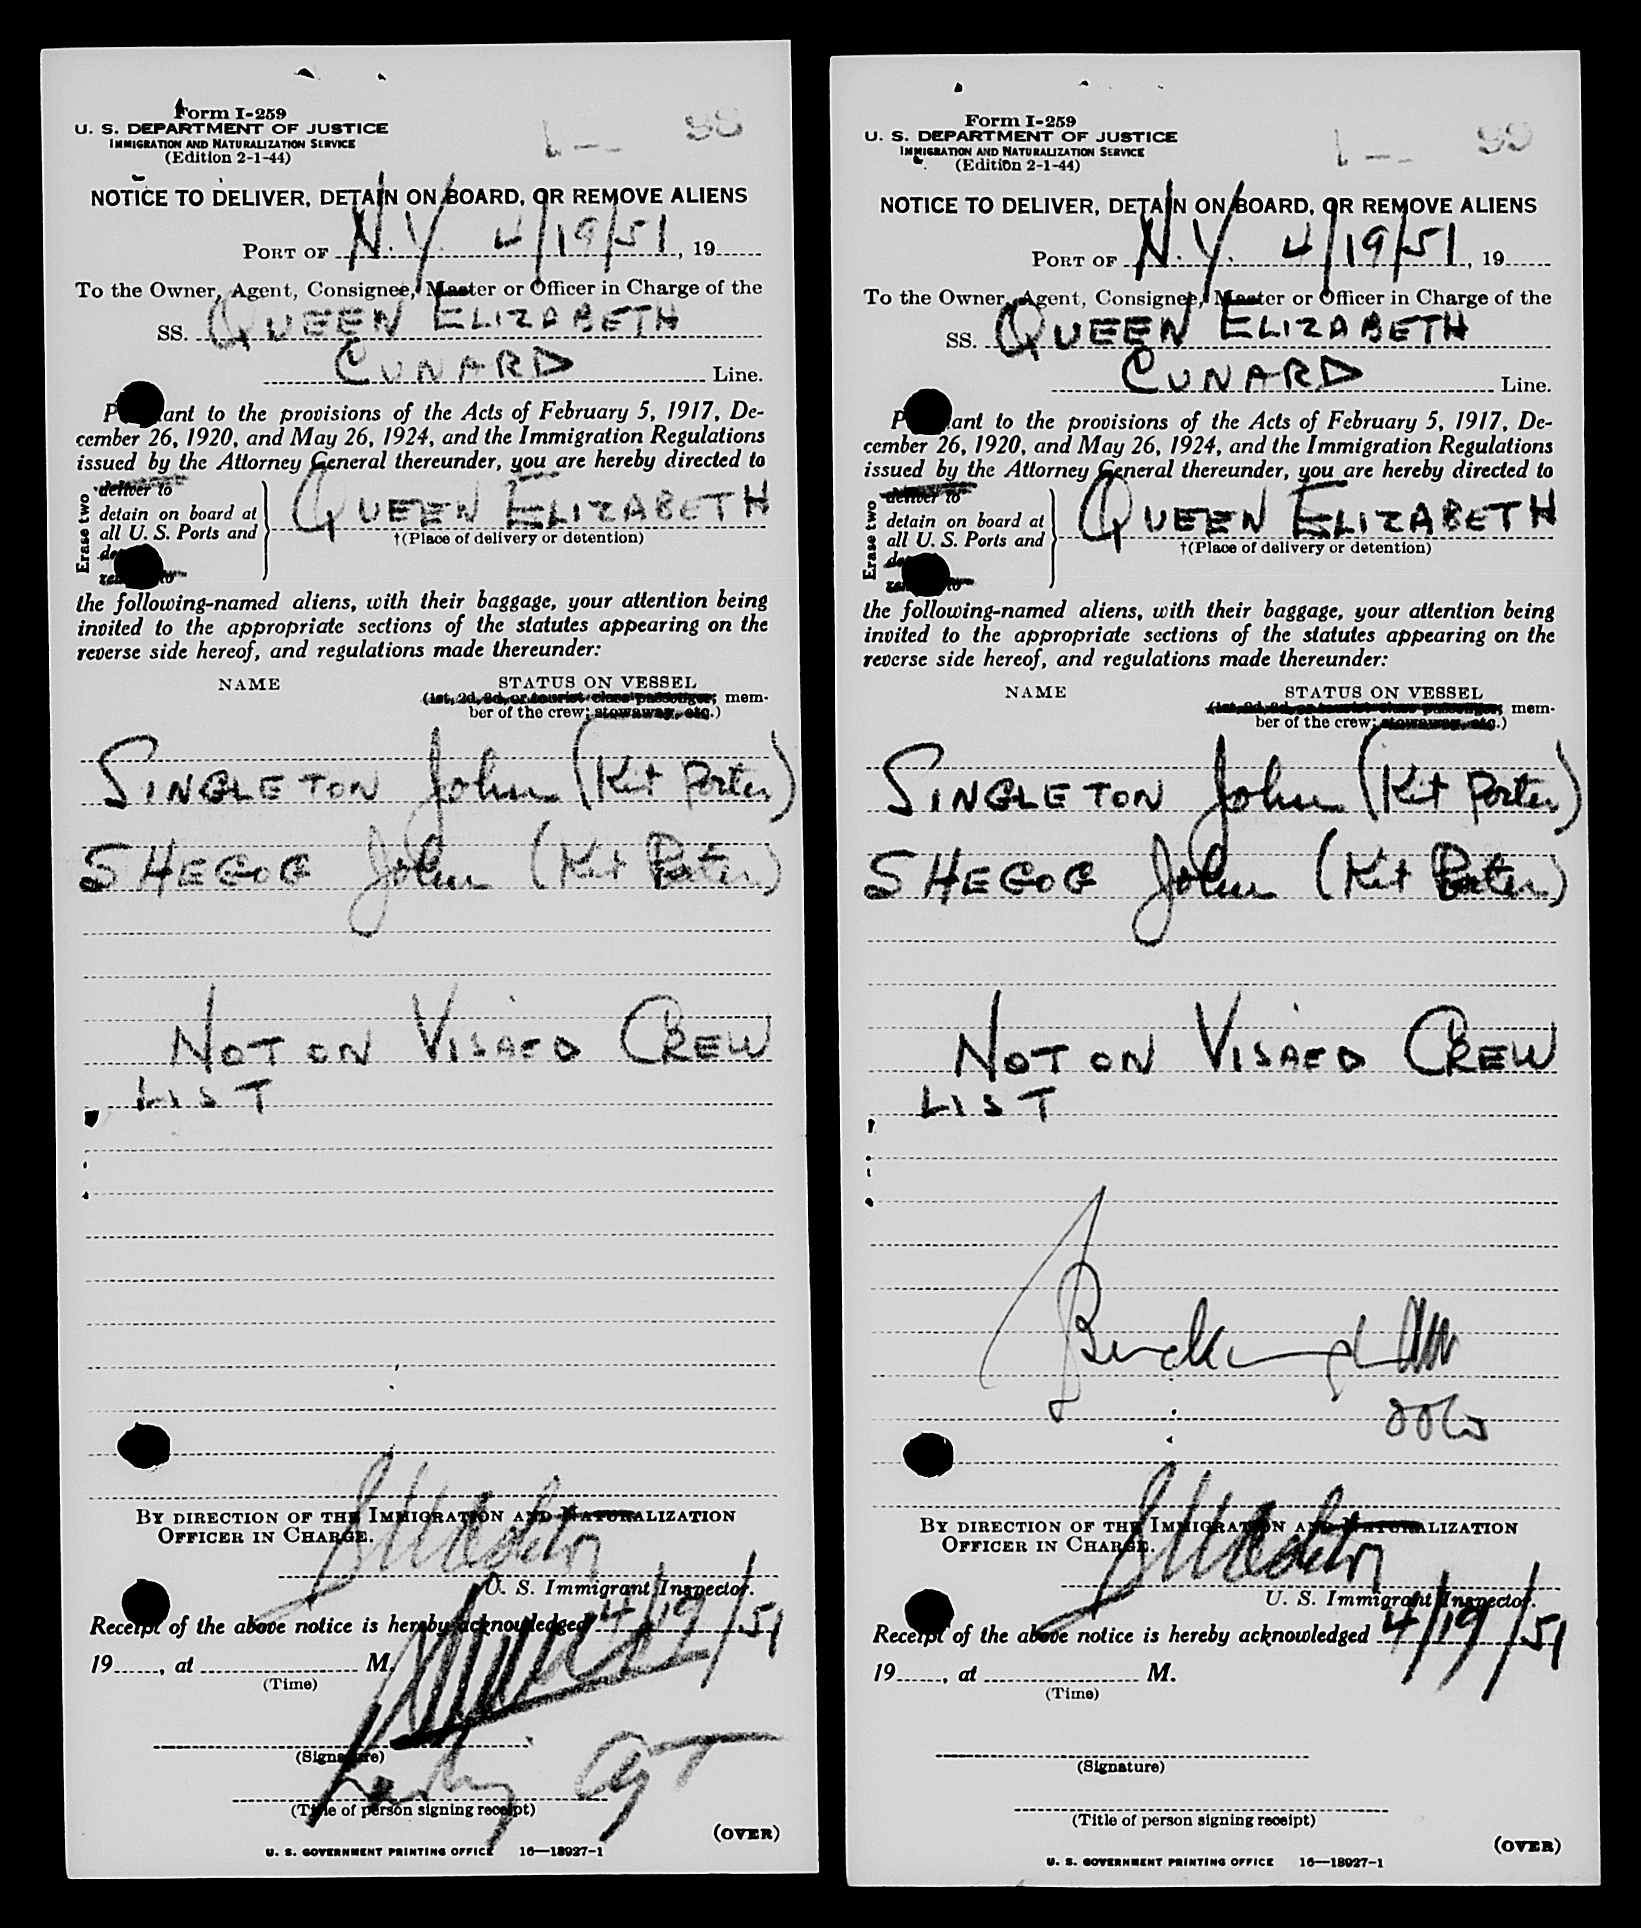 Form I-259
U. S. DEPARTMENT OF JUSTICE
IMMIGRATION AND NATURALIZATION SERVICE
(Edition 2-1-44)
NOTICE TO DELIVER, DETAIN ON BOARD, OR REMOVE ALIENS
PORT OF N.Y. 4/19/51, 19
To the Owner, Agent, Consignee, Master or Officer in Charge of the
SS. QUEEN ELIZABETH
CUNARD Line.
ant to the provisions of the Acts of February 5, 1917, De-
cember 26, 1920, and May 26, 1924, and the Immigration Regulations
issued by the Attorney General thereunder, you are hereby directed to
Erase two
deliver to
detain on board at
all U. S. Ports and
QUEEN ELIZABETH
†(Place of delivery or detention)
the following-named aliens, with their baggage, your attention being
invited to the appropriate sections of the statutes appearing on the
reverse side hereof, and regulations made thereunder:
NAME STATUS ON VESSEL
(1st, 2d, 3d, or tourist class passenger; mem-
ber of the crew; stowaway, etc.)
SINGLETON John (Kit Porter)
SHEGOG John (Kit Porter)
NOT ON VISAED CREW
LIST
BY DIRECTION OF THE IMMIGRATION AND NATURALIZATION
OFFICER IN CHARGE.
U. S. Immigrant Inspector.
Receipt of the above notice is hereby acknowledged 4/19/51
19, at M.
(Time)
(Signature)
(Title of person signing receipt)
(OVER)
U. S. GOVERNMENT PRINTING OFFICE 16—18927-1
Form I-259
U. S. DEPARTMENT OF JUSTICE
IMMIGRATION AND NATURALIZATION SERVICE
(Edition 2-1-44)
NOTICE TO DELIVER, DETAIN ON BOARD, OR REMOVE ALIENS
PORT OF N.Y. 4/19/51, 19
To the Owner, Agent, Consignee, Master or Officer in Charge of the
SS. QUEEN ELIZABETH
CUNARD Line.
ant to the provisions of the Acts of February 5, 1917, De-
cember 26, 1920, and May 26, 1924, and the Immigration Regulations
issued by the Attorney General thereunder, you are hereby directed to
Erase two
deliver to
detain on board at
all U. S. Ports and
QUEEN ELIZABETH
†(Place of delivery or detention)
the following-named aliens, with their baggage, your attention being
invited to the appropriate sections of the statutes appearing on the
reverse side hereof, and regulations made thereunder:
NAME STATUS ON VESSEL
(1st, 2d, 3d, or tourist class passenger; mem-
ber of the crew; stowaway, etc.)
SINGLETON John (Kit Porter)
SHEGOG John (Kit Porter)
NOT ON VISAED CREW
LIST
BY DIRECTION OF THE IMMIGRATION AND NATURALIZATION
OFFICER IN CHARGE.
U. S. Immigrant Inspector.
Receipt of the above notice is hereby acknowledged 4/19/51
19, at M.
(Time)
(Signature)
(Title of person signing receipt)
(OVER)
U. S. GOVERNMENT PRINTING OFFICE 16—18927-1